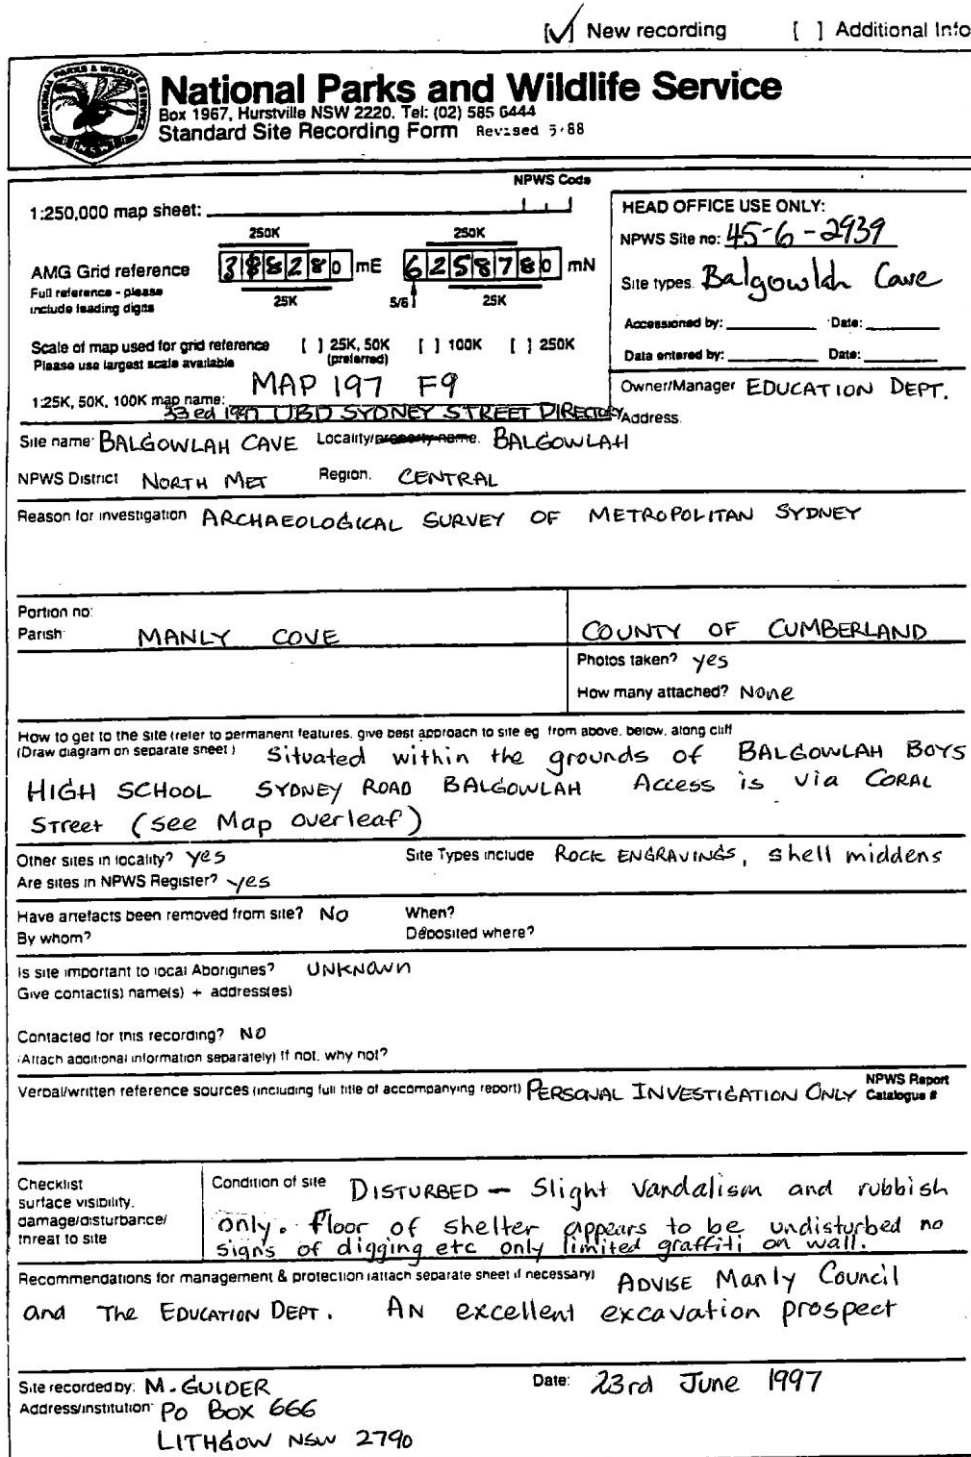 [✓] New recording [ ] Additional Info
NATIONAL PARKS & WILDLIFE SERVICE
N.S.W.
National Parks and Wildlife Service
Box 1967, Hurstville NSW 2220. Tel: (02) 585 6444
Standard Site Recording Form Revised 5/88
NPWS Code
1:250,000 map sheet:
HEAD OFFICE USE ONLY:
NPWS Site no: 45-6-2939
Site types. Balgowlah Cave
Accessioned by: Date:
Data entered by: Date:
250K 250K
AMG Grid reference 388280 mE 6258780 mN
Full reference - please
include leading digits
25K 5/6 25K
Scale of map used for grid reference [ ] 25K, 50K [ ] 100K [ ] 250K
Please use largest scale available (preferred)
MAP 197 F9
1:25K, 50K, 100K map name:
33 ed UBD SYDNEY STREET DIRECTORY
Owner/Manager EDUCATION DEPT.
Address.
Site name: BALGOWLAH CAVE Locality/property name. BALGOWLAH
NPWS District NORTH MET Region. CENTRAL
Reason for investigation ARCHAEOLOGICAL SURVEY OF METROPOLITAN SYDNEY
Portion no:
Parish: MANLY COVE
COUNTY OF CUMBERLAND
Photos taken? yes
How many attached? None
How to get to the site (refer to permanent features, give best approach to site eg. from above, below, along cliff
(Draw diagram on separate sheet) Situated within the grounds of BALGOWLAH BOYS
HIGH SCHOOL SYDNEY ROAD BALGOWLAH Access is via CORAL
Street (see Map overleaf)
Other sites in locality? yes Site Types include ROCK ENGRAVINGS, shell middens
Are sites in NPWS Register? yes
Have artefacts been removed from site? No When?
By whom? Deposited where?
Is site important to local Aborigines? UNKNOWN
Give contact(s) name(s) + address(es)
Contacted for this recording? NO
(Attach additional information separately) If not, why not?
Verbal/written reference sources (including full title of accompanying report) PERSONAL INVESTIGATION ONLY NPWS Report
Catalogue #
Checklist
surface visibility,
damage/disturbance/
threat to site
Condition of site DISTURBED - Slight Vandalism and rubbish
only. floor of shelter appears to be undisturbed no
signs of digging etc only limited graffiti on wall.
Recommendations for management & protection (attach separate sheet if necessary) ADVISE Manly Council
and The EDUCATION DEPT. AN excellent excavation prospect
Site recorded by: M. GUIDER Date: 23rd June 1997
Address/institution: Po Box 666
LITHGOW NSW 2790